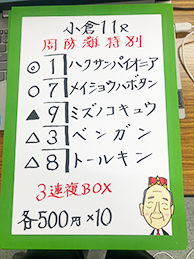 小倉11R
周防灘特別
◎1ハクサンパイオニア
○7メイショウハボタン
▲9ミズノコキュウ
△3ベンガン
△8トールキン
3連複BOX
各500円×10